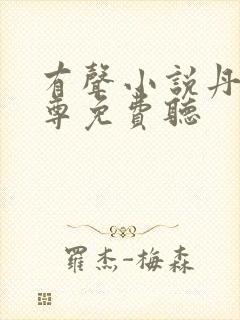 有聲小說丹
尊免費聽
羅杰-梅森